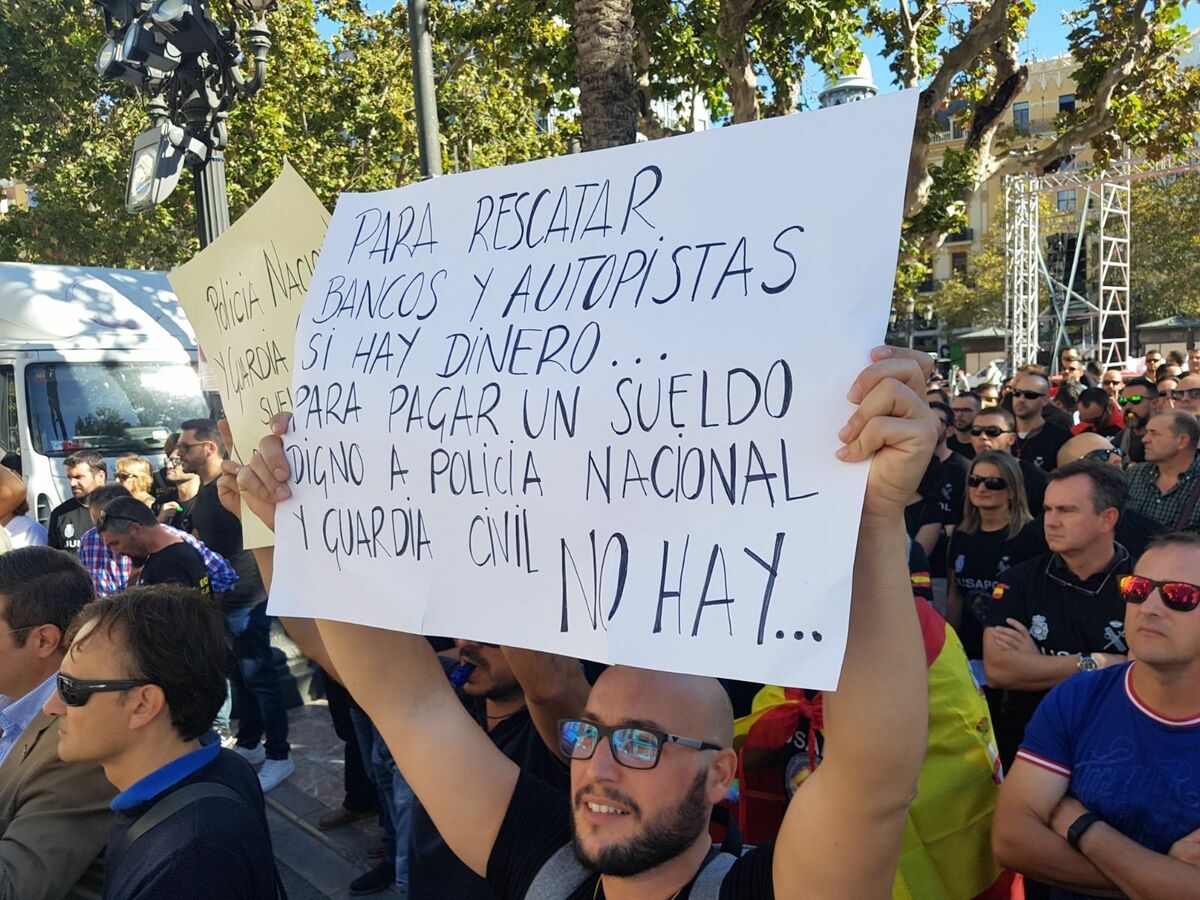 PARA RESCATAR
BANCOS Y AUTOPISTAS
SI HAY DINERO...
PARA PAGAR UN SUELDO
DIGNO A POLICIA NACIONAL
Y GUARDIA CIVIL NO HAY...
POLICIA NAC
Y GUARDIA
SUE
JUSAPOL